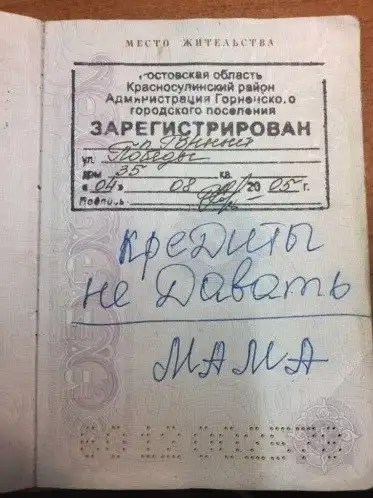 МЕСТО ЖИТЕЛЬСТВА
Ростовская область
Красносулинский район
Администрация Горненского
городского поселения
ЗАРЕГИСТРИРОВАН
п. Горный
ул. Победы
дом 35 кв.
«04» 08 2005 г.
Подпись:
кредиты
не давать
МАМА